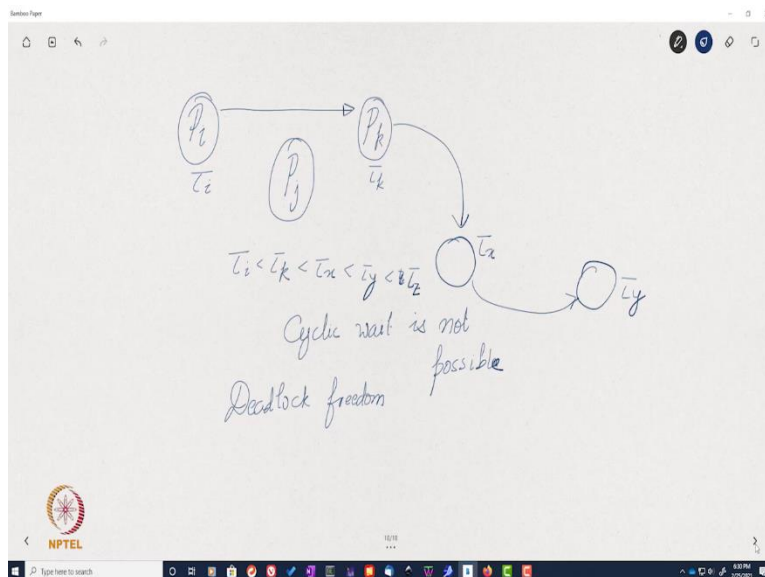 Bamboo Paper
P_i P_k
τ_i P_j τ_k
τ_x
τ_i < τ_k < τ_x < τ_y < τ_z
τ_y
Cyclic wait is not
possible
Deadlock freedom
NPTEL
18/18
Type here to search
6:30 PM
2/25/2021